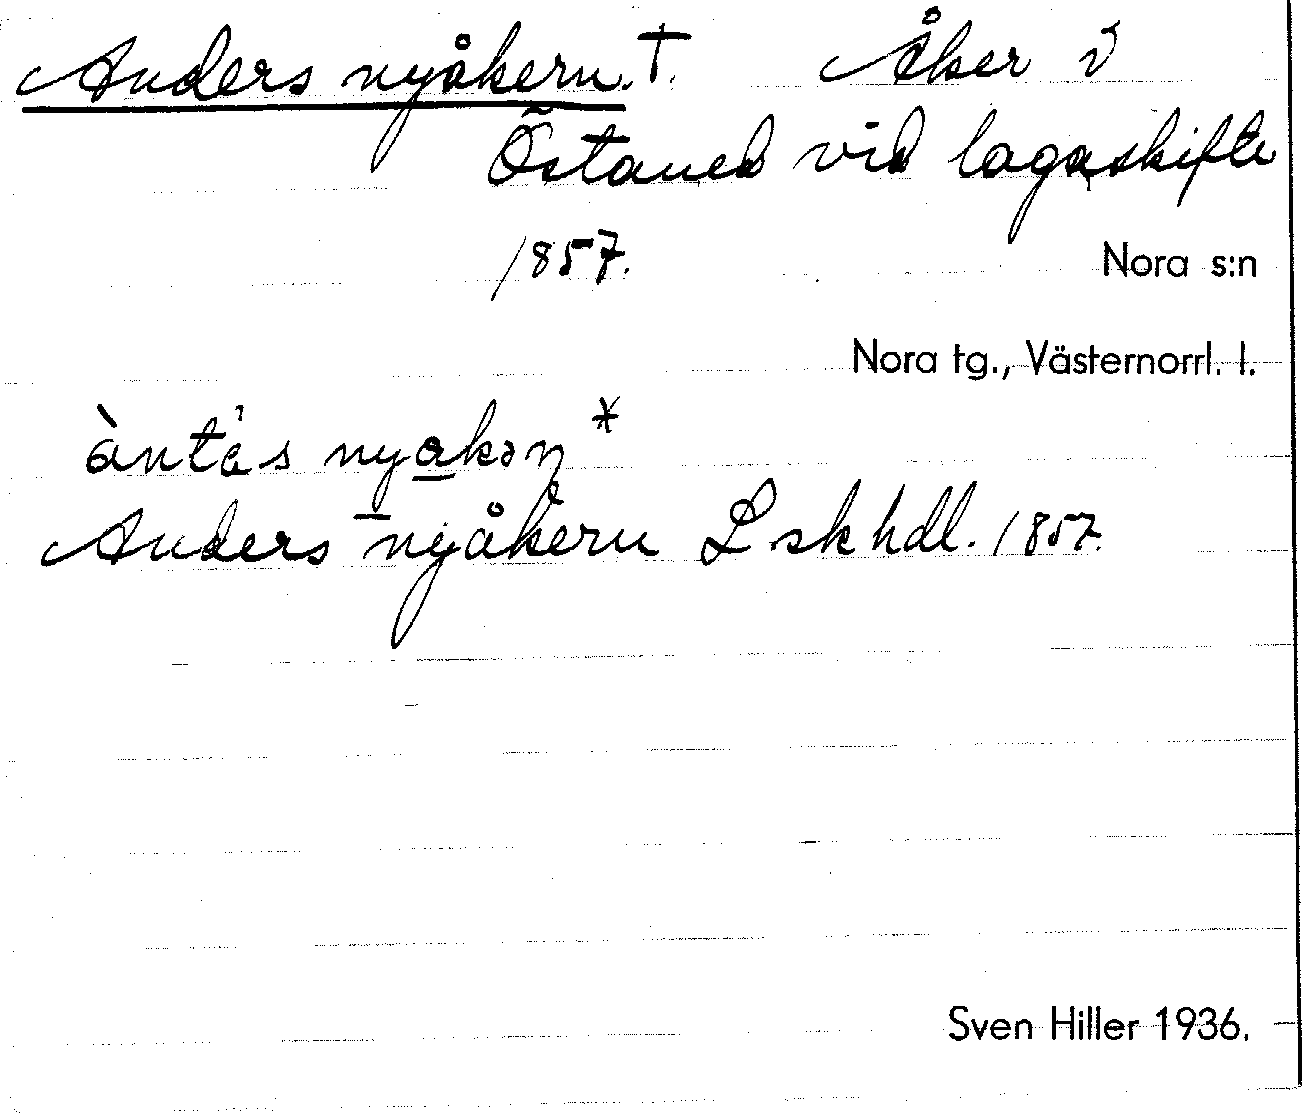 Anders nyåkern. †. Åker i
Östaned vid laga skifte
1857.
Nora s:n
Nora tg., Västernorrl. l.
àntás nyakən *
Anders nyåkern L sk hdl. 1857.
Sven Hiller 1936.